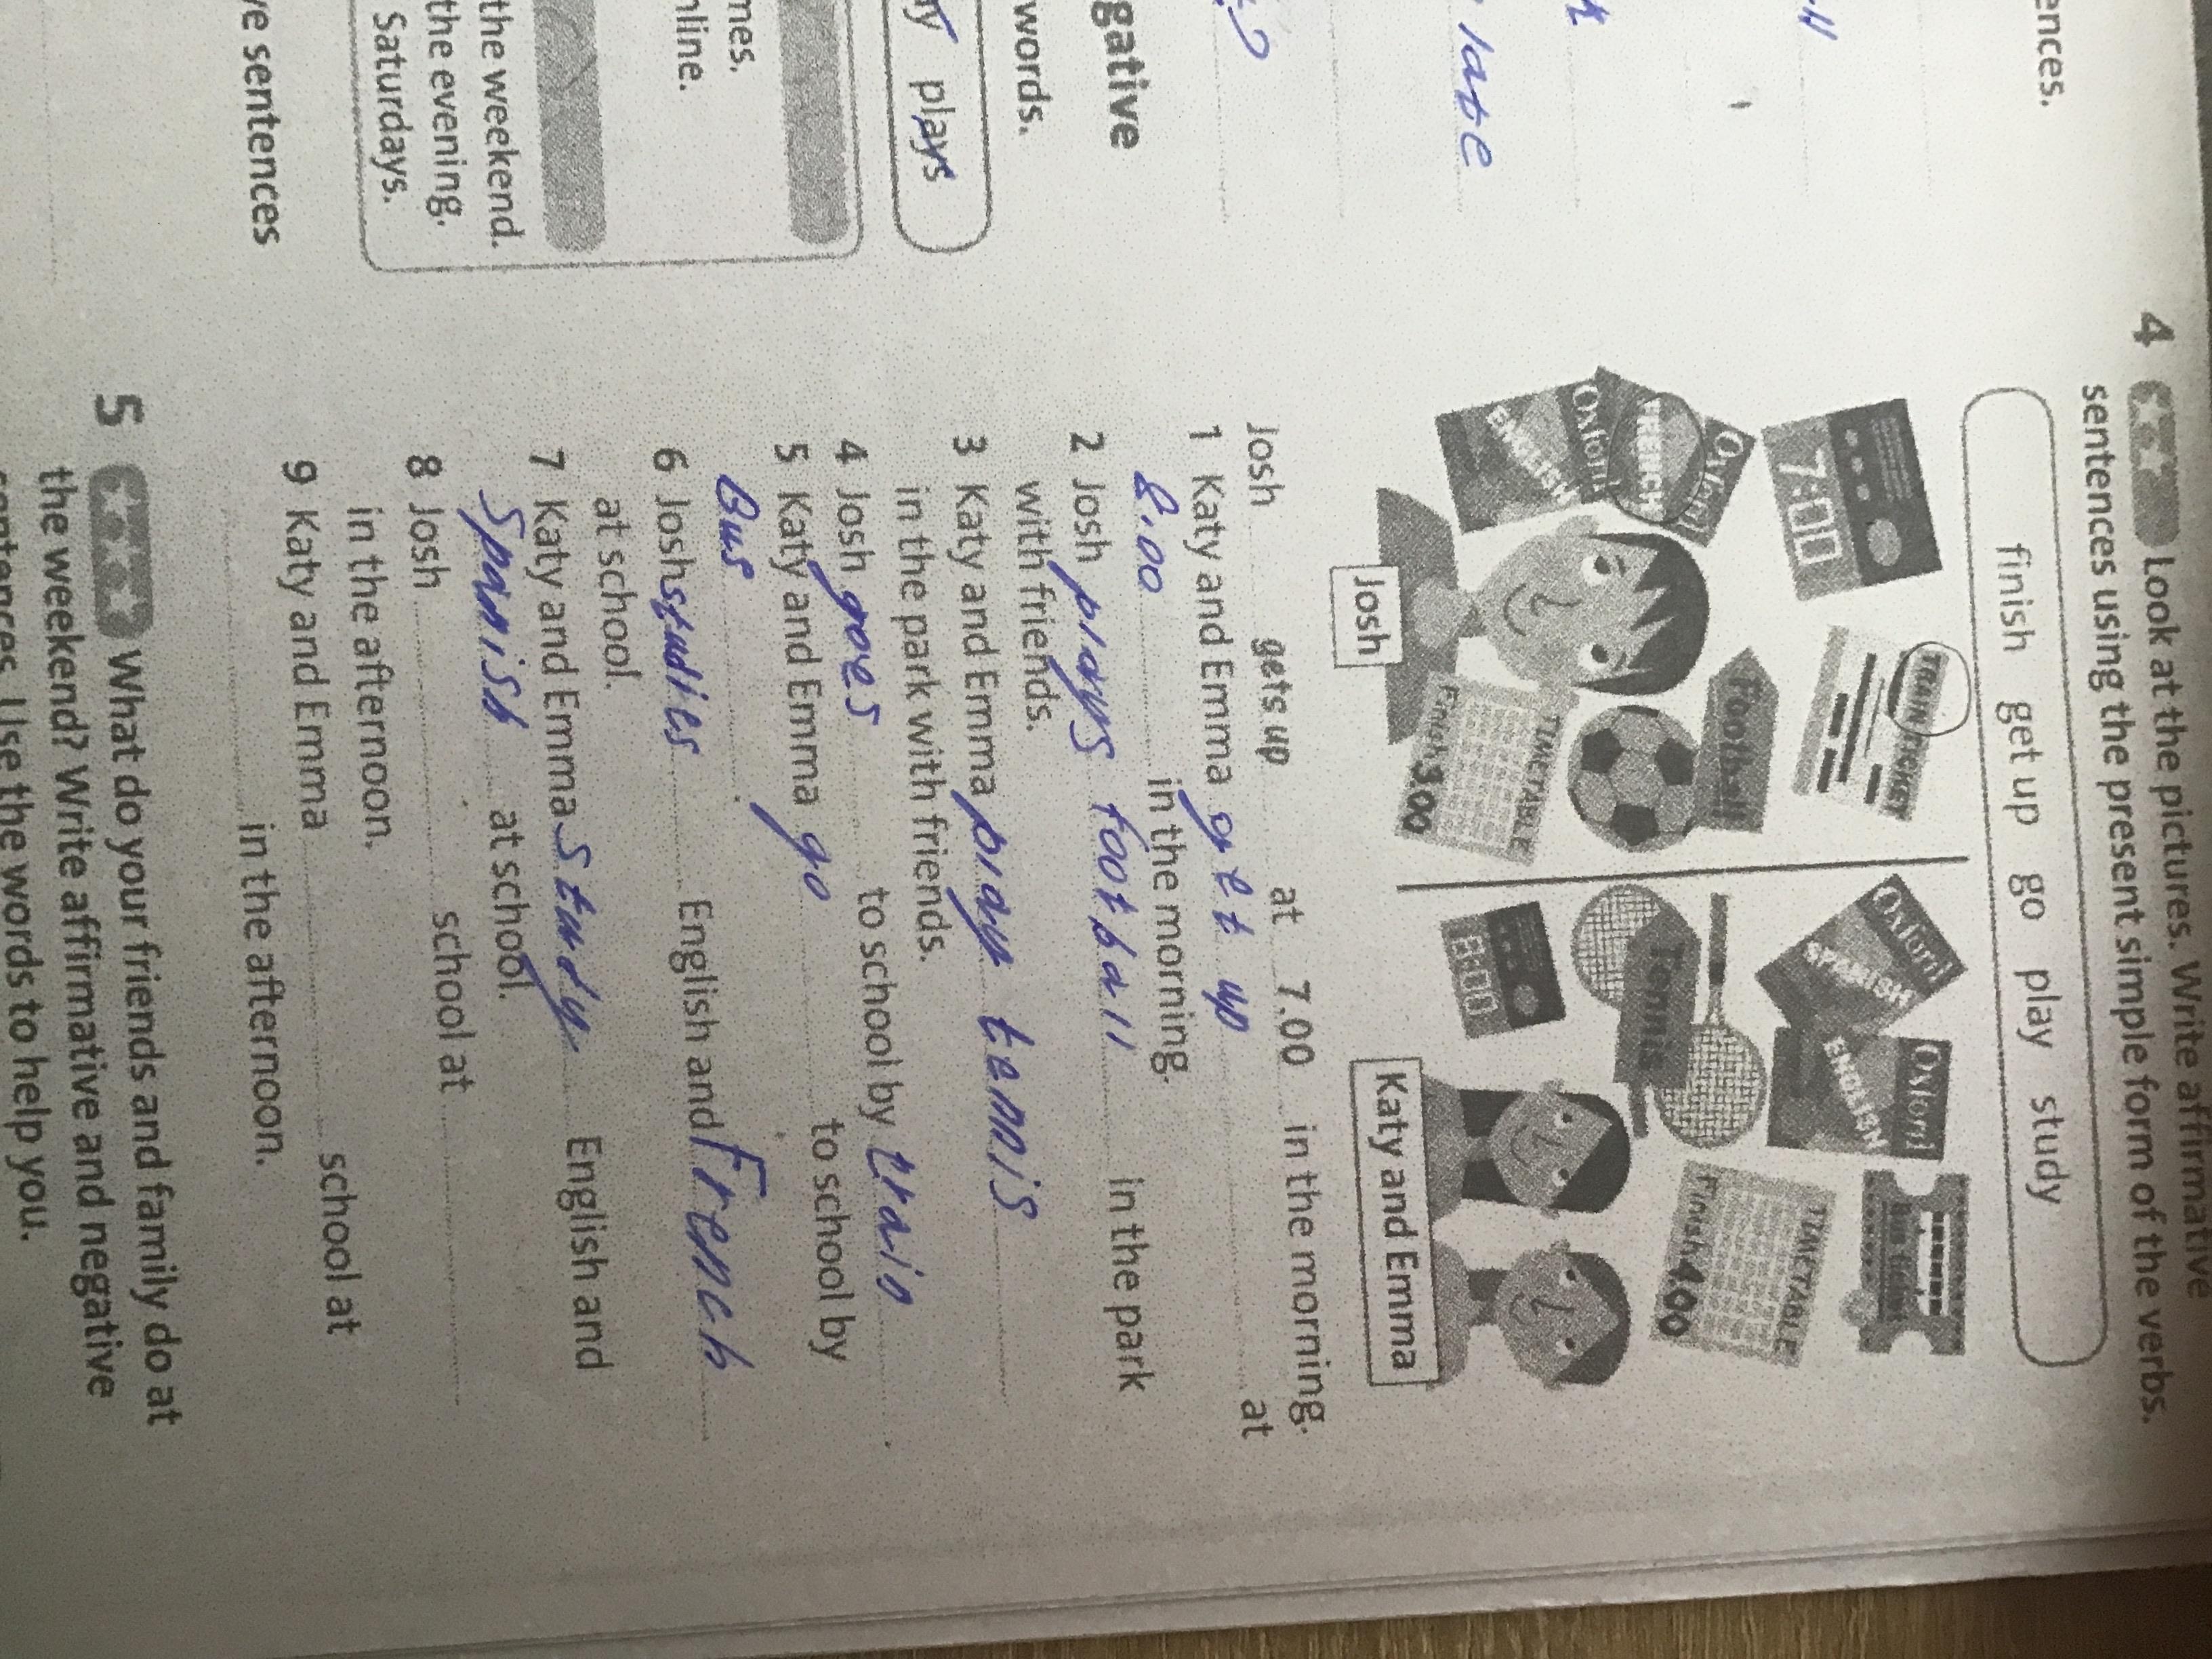 ences.
late
gative
words.
plays
mes.
nline.
the weekend.
the evening.
Saturdays.
ve sentences
4 Look at the pictures. Write affirmative
sentences using the present simple form of the verbs.
finish get up go play study
7:00
TRAIN
Oxford
FRENCH
Oxford
ENGLISH
Football
TIMETABLE
Finish 3.00
Josh
Oxford
SPANISH
Oxford
ENGLISH
Bus ticket
Tennis
8:00
TIMETABLE
Finish 4.00
Katy and Emma
Josh gets up at 7.00 in the morning.
1 Katy and Emma get up at
8.00 in the morning.
2 Josh plays football in the park
with friends.
3 Katy and Emma play tennis
in the park with friends.
4 Josh goes to school by train.
5 Katy and Emma go to school by
Bus.
6 Josh studies English and French
at school.
7 Katy and Emma study English and
Spanish at school.
8 Josh school at
in the afternoon.
9 Katy and Emma school at
in the afternoon.
5 What do your friends and family do at
the weekend? Write affirmative and negative
sentences. Use the words to help you.